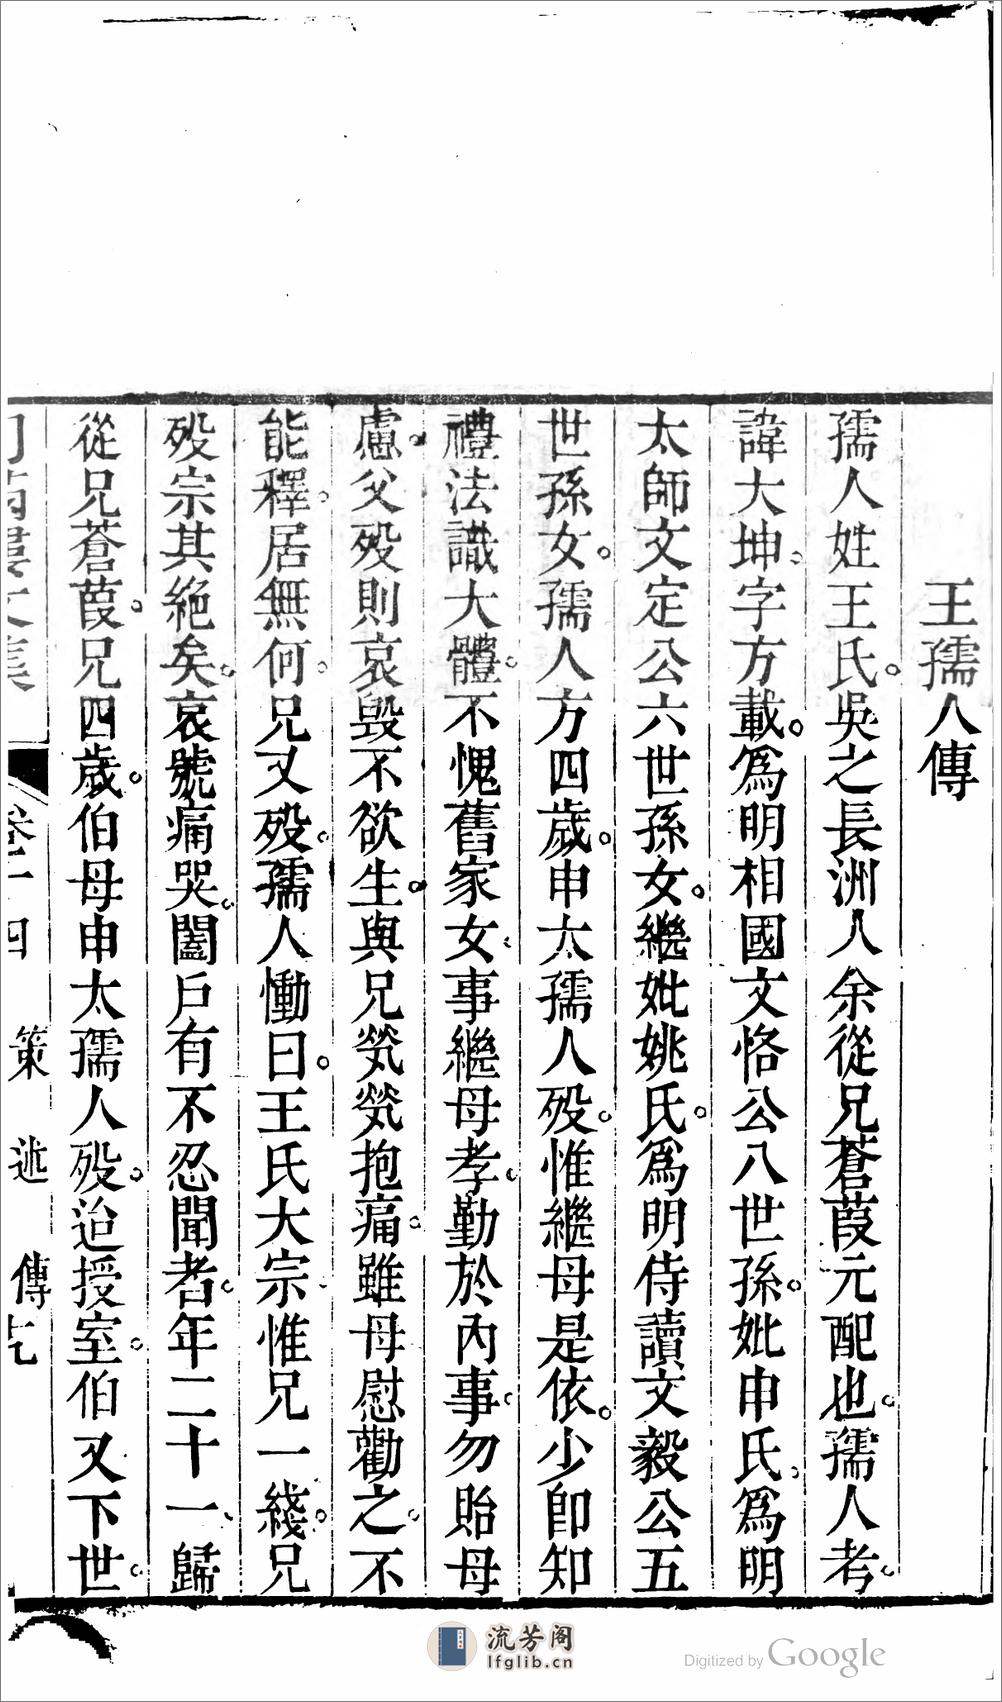 王孺人傳
孺人姓王氏吳之長洲人余從兄蒼葭元配也孺人考
諱大坤字方載爲明相國文恪公八世孫妣申氏爲明
太師文定公六世孫女繼妣姚氏爲明侍讀文毅公五
世孫女孺人方四歲申太孺人歿惟繼母是依少卽知
禮法識大體不愧舊家女事繼母孝勤於內事勿貽母
慮父歿則哀毀不欲生與兄煢煢抱痛雖母慰勸之不
能釋居無何兄又歿孺人慟曰王氏大宗惟兄一綫兄
歿宗其絕矣哀號痛哭闔戶有不忍聞者年二十一歸
從兄蒼葭兄四歲伯母申太孺人歿迨授室伯又下世
文集 卷十四 策 述 傳 七
流芳阁
lfglib.cn
Digitized by Google